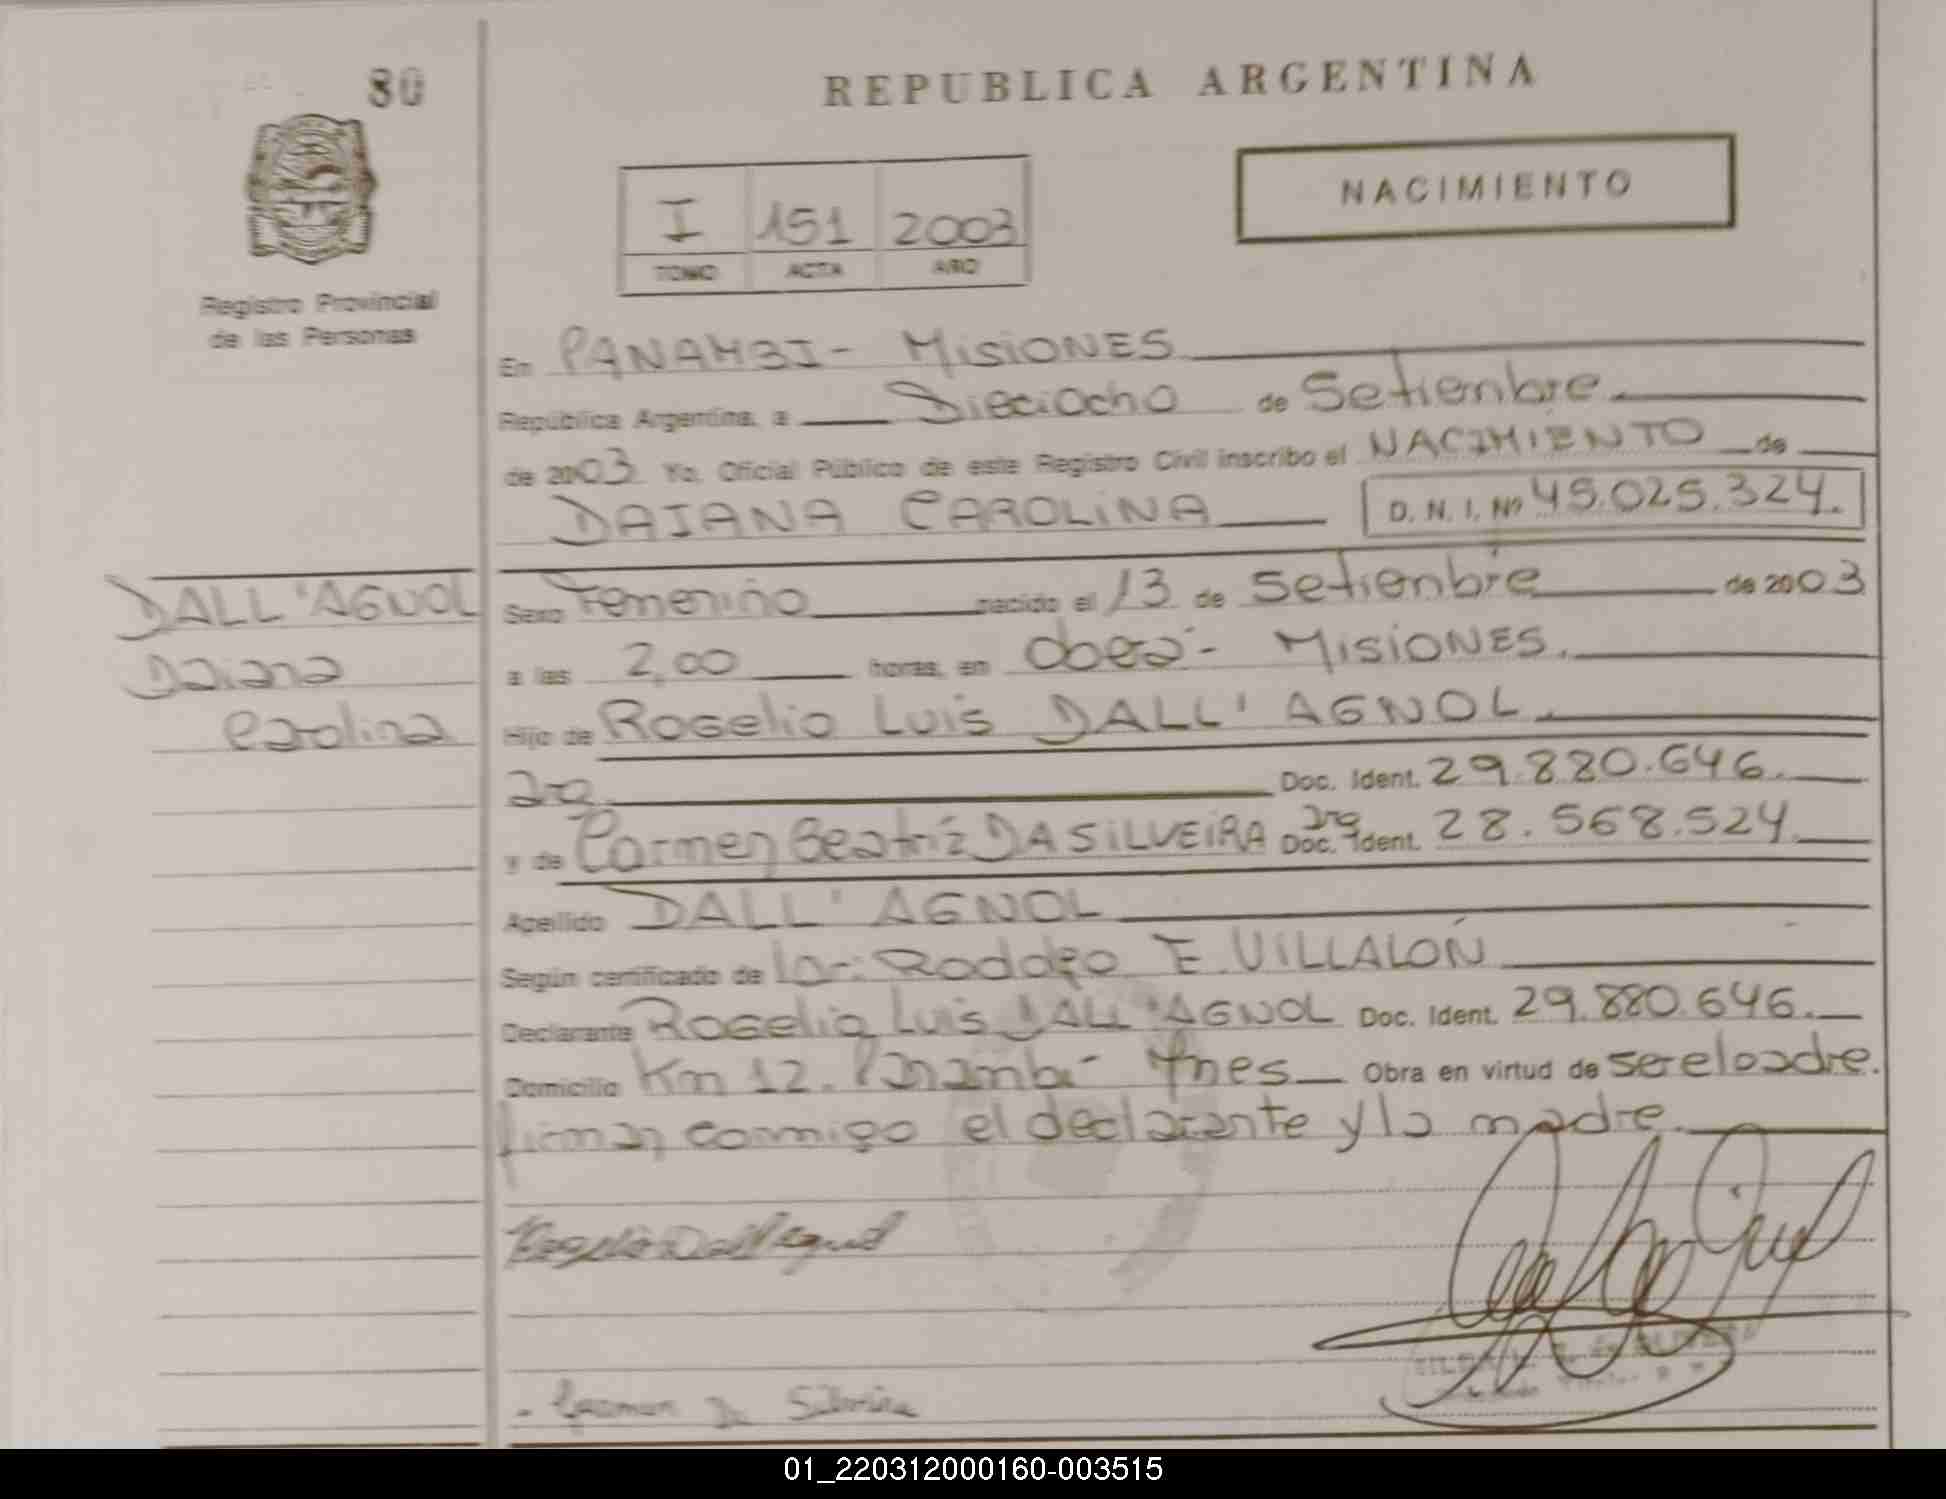 80
REPUBLICA ARGENTINA
NACIMIENTO
I 151 2003
TOMO ACTA AÑO
Registro Provincial
de las Personas
En PANAMBI - MISIONES
República Argentina, a Dieciocho de Setiembre
de 2003 Yo, Oficial Público de este Registro Civil inscribo el NACIMIENTO de
DAIANA CAROLINA D. N. I. Nº 45.025.324.
DALL'AGNOL
Daiana
Carolina
Sexo Femenino nacido el 13 de Setienbre de 2003
a las 2,00 horas, en Oberá - MISIONES.
Hijo de Rogelio Luis DALL'AGNOL.
arg. Doc. Ident. 29.880.646.
y de Carmen Beatriz DA SILVEIRA arg Doc. Ident. 28.568.524
Apellido DALL'AGNOL
Según certificado de E. VILLALÓN
Declarante Rogelio Luis DALL'AGNOL Doc. Ident. 29.880.646.
Domicilio Km 12. Panambí Mnes Obra en virtud de ser el padre.
firman conmigo el declarante y la madre.
Rogelio Dall Agnol
Carmen Da Silveira
01_220312000160-003515